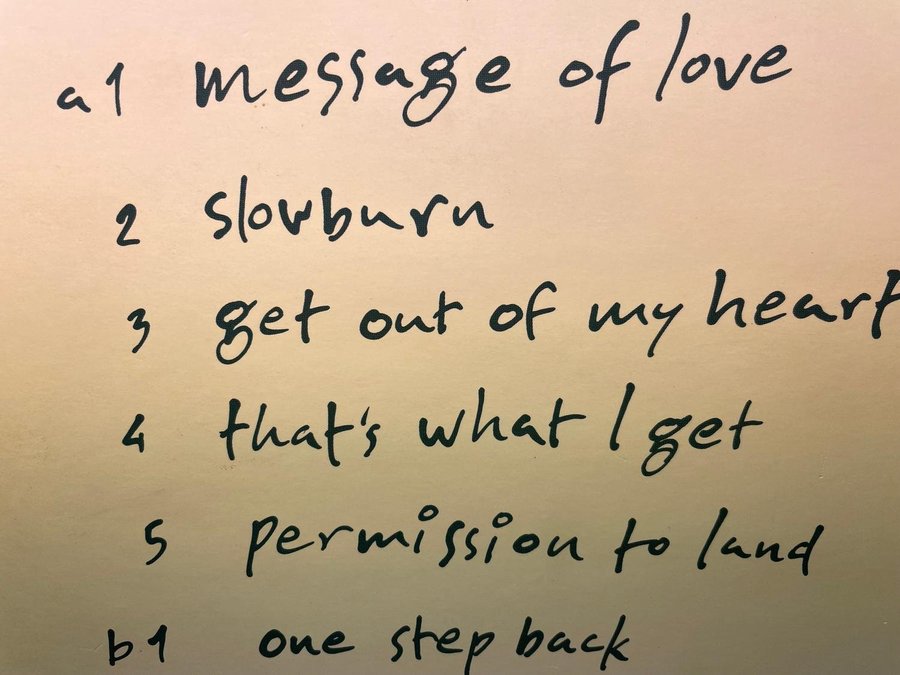 a1 message of love
2 slowburn
3 get out of my heart
4 that's what I get
5 permission to land
b1 one step back